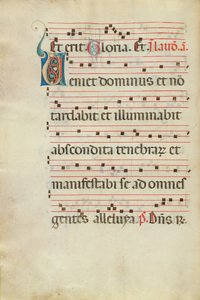 et erit. Gloria. Et
Veniet dominus et no
tardabit et illuminabit
abscondita tenebrarum et
manifestabit se ad omnes
gentes alleluya. p̄. Dn̄s